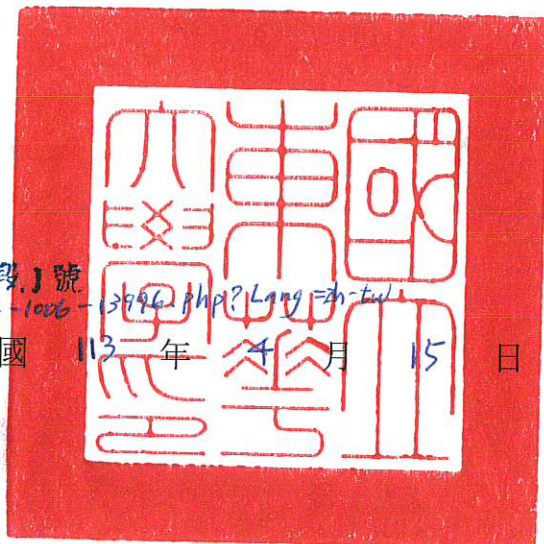 國立
東華
大學印
段1號
-1006-13996.php?Lang=zh-tw
國 113 年 4 月 15 日